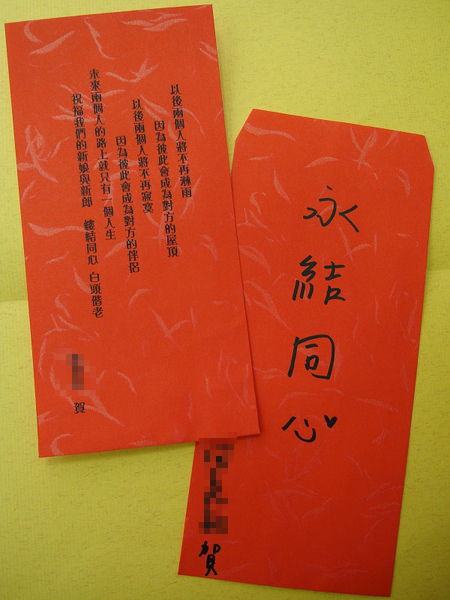 以後兩個人將不再淋雨
因為彼此會成為對方的屋頂
以後兩個人將不再寂寞
因為彼此會成為對方的伴侶
未來兩個人的路上就只有一個人生
祝福我們的新娘與新郎 締結同心 白頭偕老
賀
永結同心♥
賀